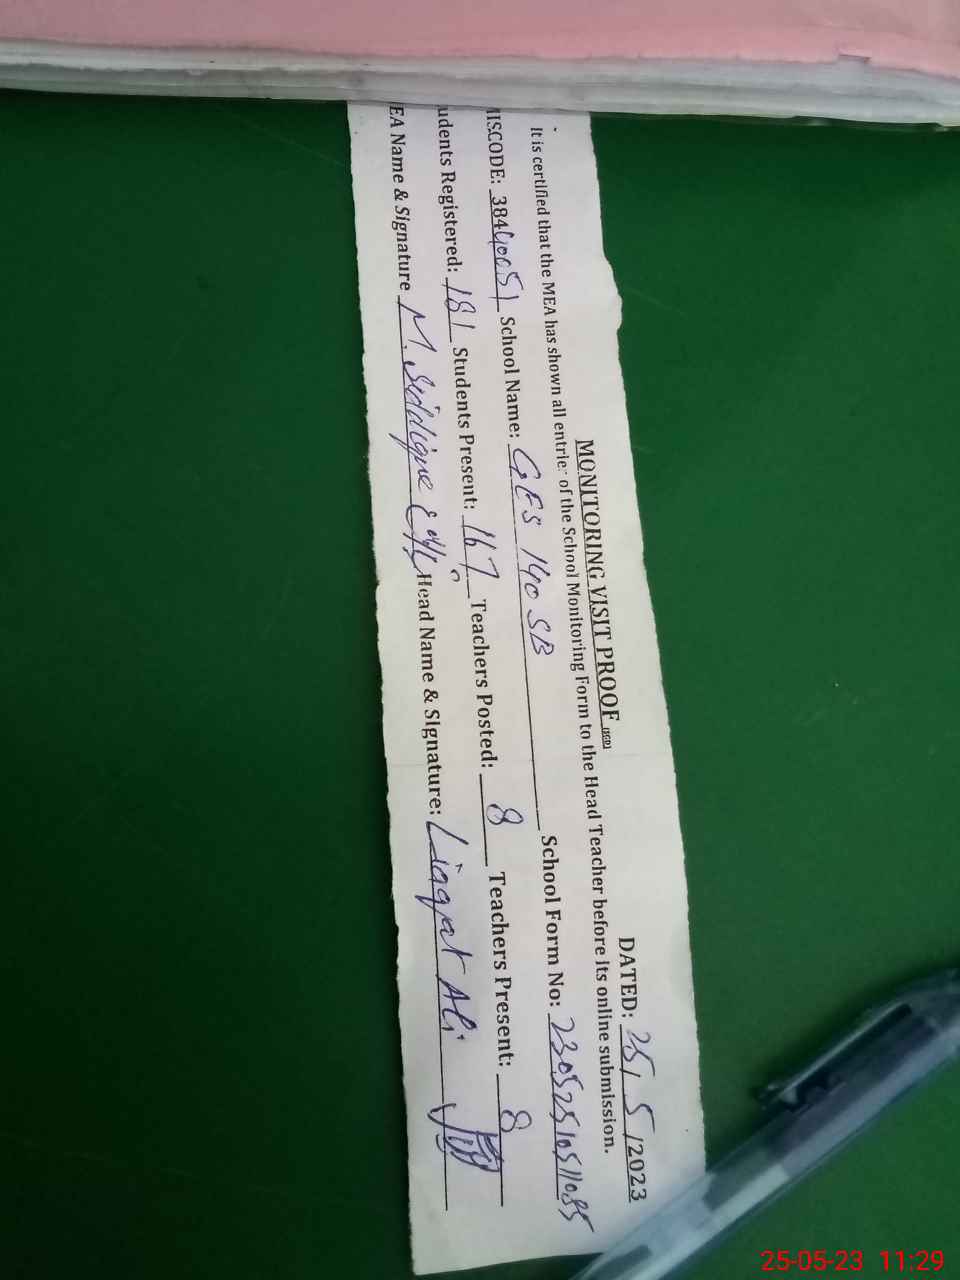 MONITORING VISIT PROOF (SED) DATED: 25/5/2023
It is certified that the MEA has shown all entries of the School Monitoring Form to the Head Teacher before its online submission.
MISCODE: 38440051 School Name: GES 140 SB School Form No:
udents Registered: 181 Students Present: 167 Teachers Posted: 8 Teachers Present: 8
EA Name & Signature M. Siddique Head Name & Signature: Liaqat Ali
25-05-23 11:29